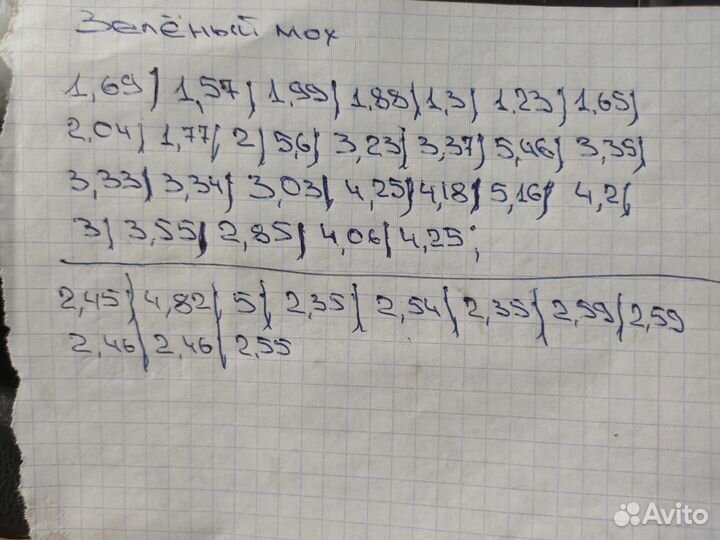 Зелёный мох
1,69/ 1,57/ 1,99/ 1,88/ 1,3/ 1,23/ 1,65/
2,04/ 1,77/ 2/ 5,6/ 3,23/ 3,37/ 5,46/ 3,35/
3,33/ 3,34/ 3,03/ 4,25/ 4,18/ 5,16/ 4,2/
3/ 3,55/ 2,85/ 4,06/ 4,25;
2,45/ 4,82/ 5/ 2,35/ 2,54/ 2,35/ 2,59/ 2,59
2,46/ 2,46/ 2,55
Avito